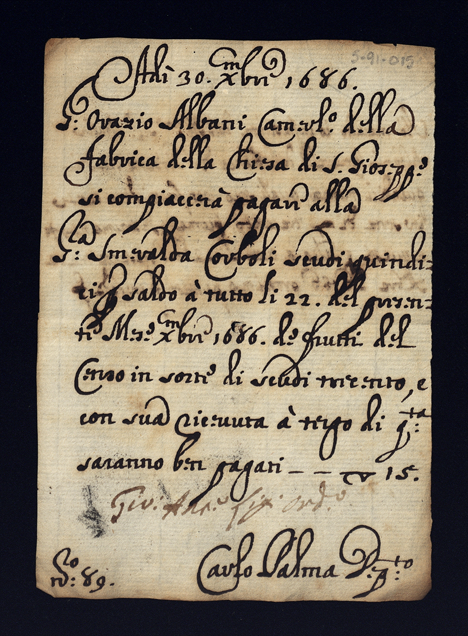 5-91-015
Adì 30. Xmbrē 1686.
Sr: Orazio Albani Camerlo. della
fabrica della Chiesa di S. Gioseppe
si compiacerà pagare alla
Sra: Smeralda Corboli scudi quindi=
ci p saldo à tutto li 22. del presen=
te Mese Xmbre 1686. de frutti del
Censo in sorte di scudi trecento, e
con sua ricevuta à tergo di qta:
saranno ben pagati — — ▽ 15.
Gio:
No: 89. Carlo Palma Depto: